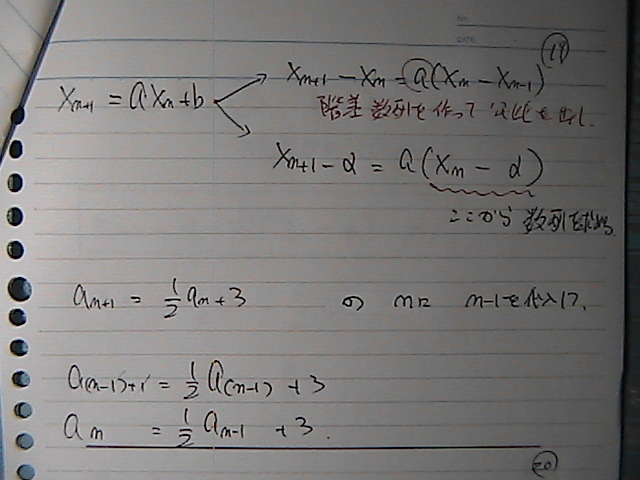 NO.
DATE
⑲
x_{n+1} - x_n = a(x_n - x_{n-1})
x_{n+1} = a x_n + b
階差数列を作って 公比を出し.
x_{n+1} - α = a(x_n - α)
ここから 数列を求める
a_{n+1} = 1/2 a_n + 3 の nに n-1を代入して、
a_{(n-1)+1} = 1/2 a_{(n-1)} + 3
a_n = 1/2 a_{n-1} + 3.
⑳